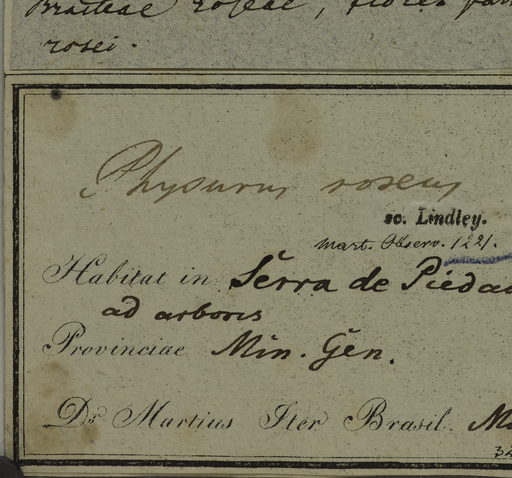 Bracteae roseae, flores
rosei.
Physurus roseus
sc. Lindley.
Mart. Observ. 1221.
Habitat in Serra de Piedad
ad arbores
Provinciae Min. Gen.
Dr. Martius Iter Brasil. M
32